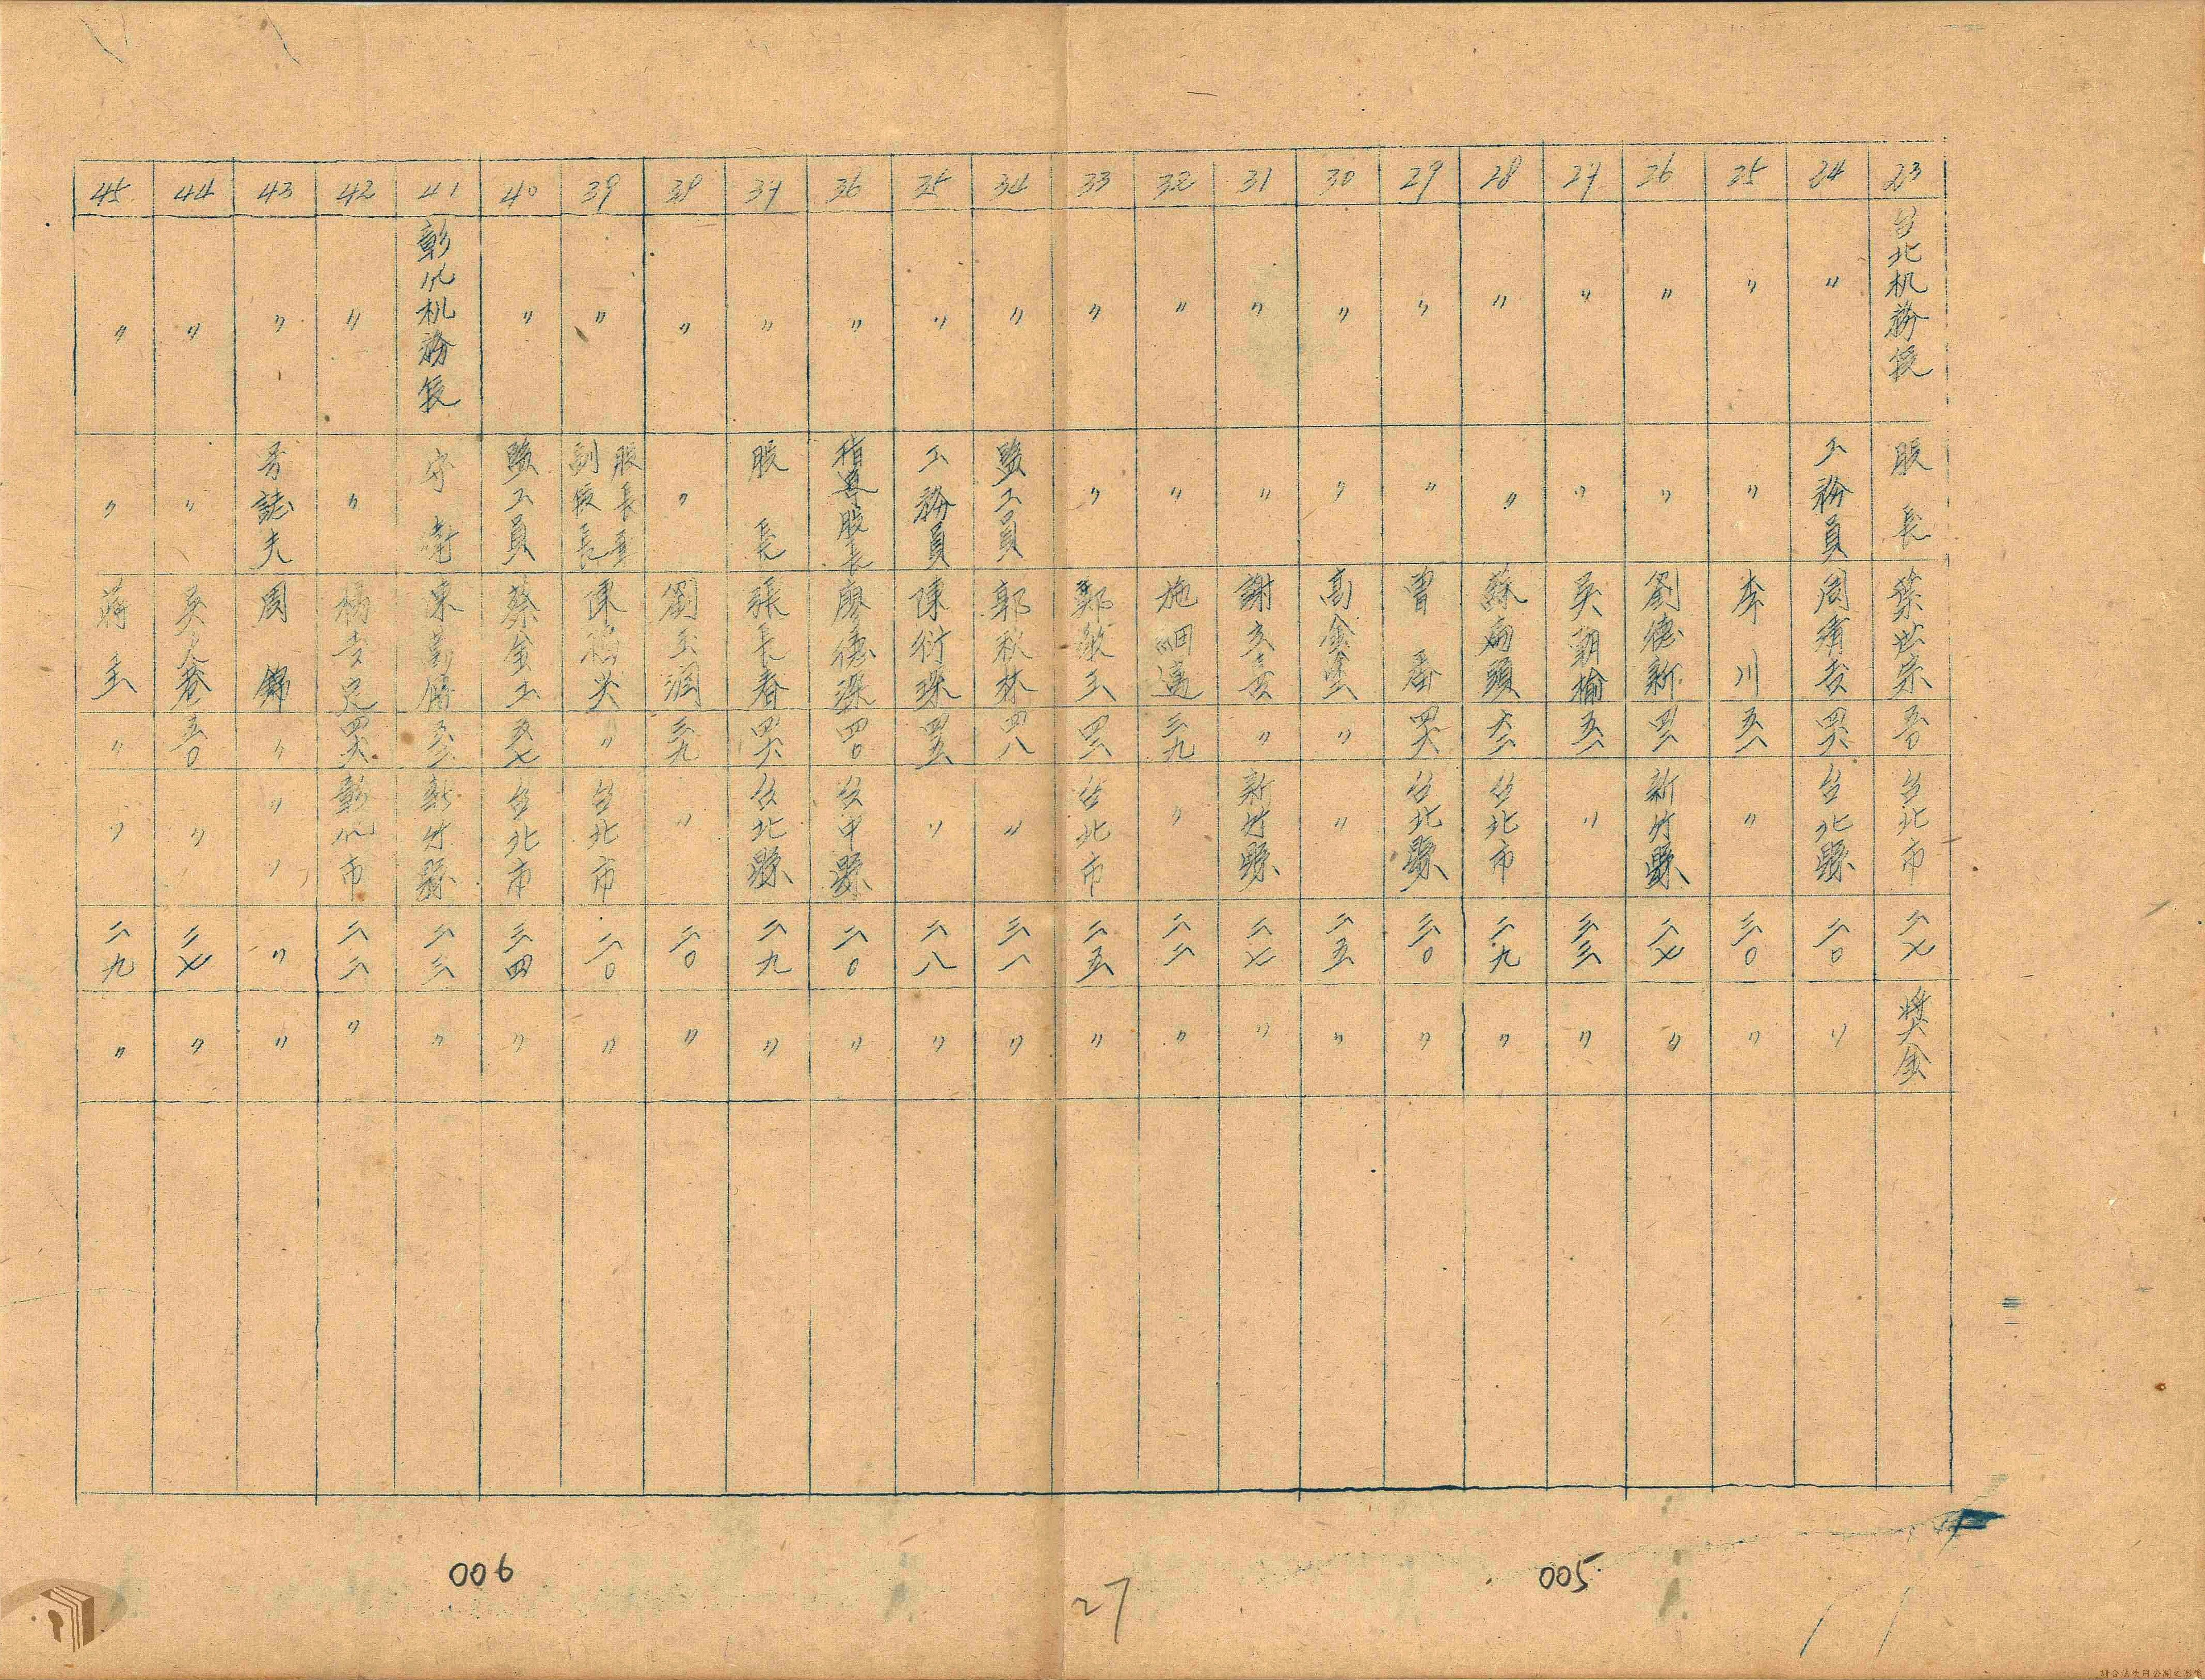 23 台北机務段 股長 葉世宗 五〇 台北市 二七 奬金
24 〃 工務員 周清吉 四六 台北縣 二〇 〃
25 〃 〃 李川 五一 〃 三〇 〃
26 〃 〃 劉德新 四二 新竹縣 二七 〃
27 〃 〃 吳朝榆 五一 〃 三三 〃
28 〃 〃 蘇扁頭 六二 台北市 二九 〃
29 〃 〃 曾番 四六 台北縣 三〇 〃
30 〃 〃 高金墨 〃 〃 二五 〃
31 〃 〃 謝文喜 〃 新竹縣 二七 〃
32 〃 〃 施細 三九 〃 二二 〃
33 〃 〃 鄭敏三 四二 台北市 二五 〃
34 〃 監工員 郭秋林 四八 〃 三一 〃
35 〃 工務員 陳衍琛 四五 〃 二八 〃
36 〃 指導股長 廖德琛 四〇 台中縣 二〇 〃
37 〃 股長 張長春 四六 台北縣 二九 〃
38 〃 〃 劉玉潤 三九 〃 二〇 〃
39 〃 副段長 股長 陳 〃 台北市 二〇 〃
40 〃 監工員 蔡金土 五七 台北市 三四 〃
41 彰化机務段 守衛 陳 新竹縣 二三 〃
42 〃 〃 楊吉定 四六 彰化市 二二 〃
43 〃 号誌夫 周錦 〃 〃 〃 〃 〃
44 〃 〃 吳 五〇 〃 二七 〃
45 〃 〃 蔣主 〃 〃 二九 〃
006
27
005